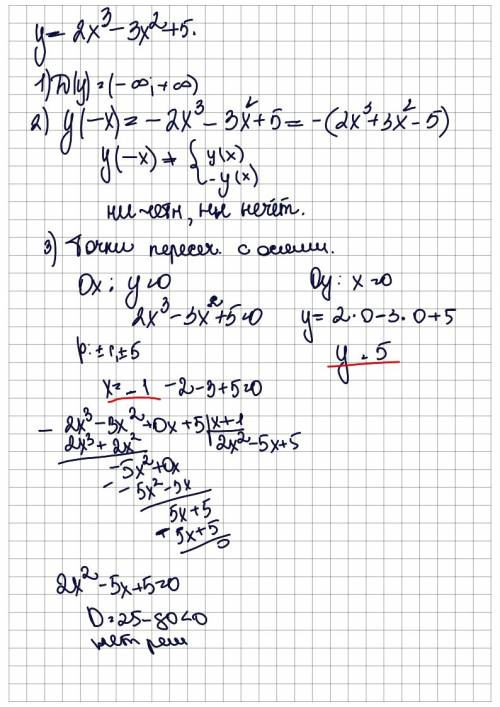 y = 2x³ - 3x² + 5.
1) D(y) = (-∞; +∞)
2) y(-x) = -2x³ - 3x² + 5 = -(2x³ + 3x² - 5)
y(-x) ≠ { y(x)
-y(x)
ни чётн, ни нечёт.
3) Точки пересеч. с осями.
Ox: y=0
2x³ - 3x² + 5 = 0
p: ±1, ±5
x = -1 -2-3+5=0
Oy: x=0
y = 2·0 - 3·0 + 5
y = 5
- 2x³ - 3x² + 0x + 5 | x+1
2x³ + 2x² 2x² - 5x + 5
-5x² + 0x
- -5x² - 5x
5x + 5
- 5x + 5
0
2x² - 5x + 5 = 0
D = 25 - 80 < 0
нет реш